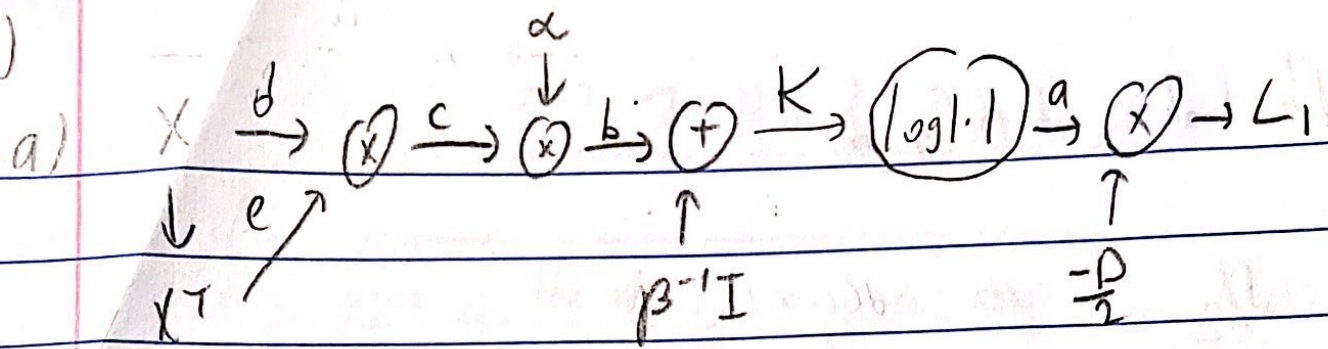 )
α
a) X d → ⊗ c → ⊗ b → ⊕ K → log|·| a → ⊗ → L₁
↓ e ↗ ↑ ↑
Xᵀ β⁻¹I -D/2